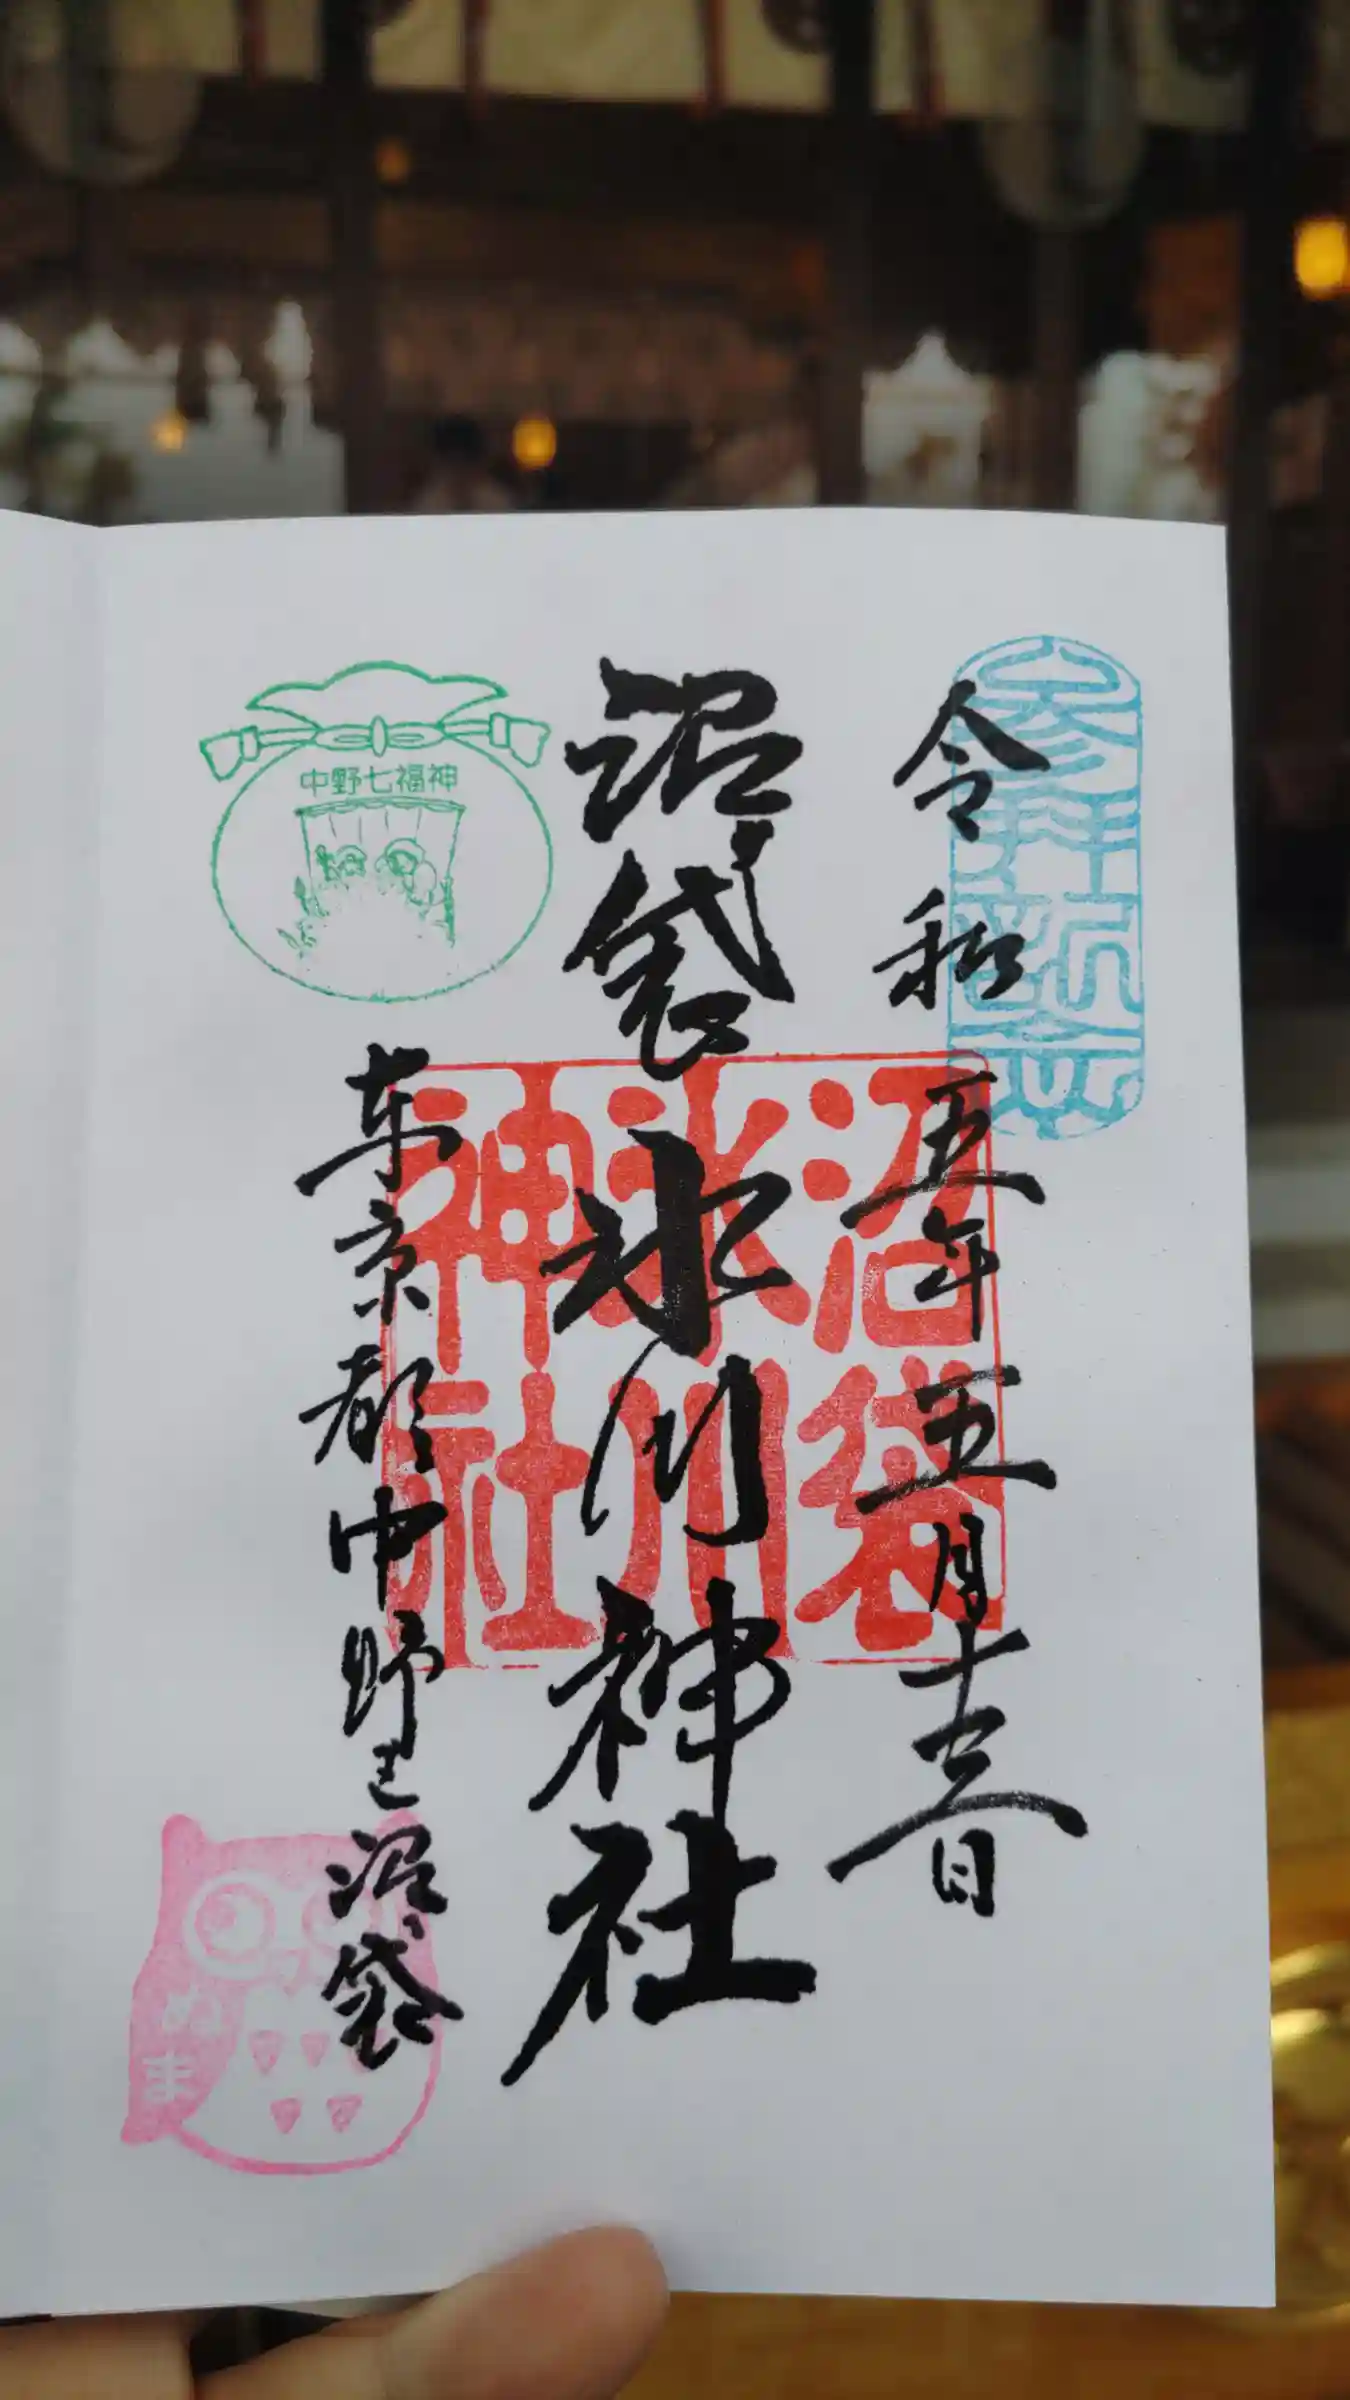 参拝祈念
令和五年五月十日
沼袋氷川神社
沼袋
氷川
神社
中野七福神
東京都中野区沼袋
ぬま